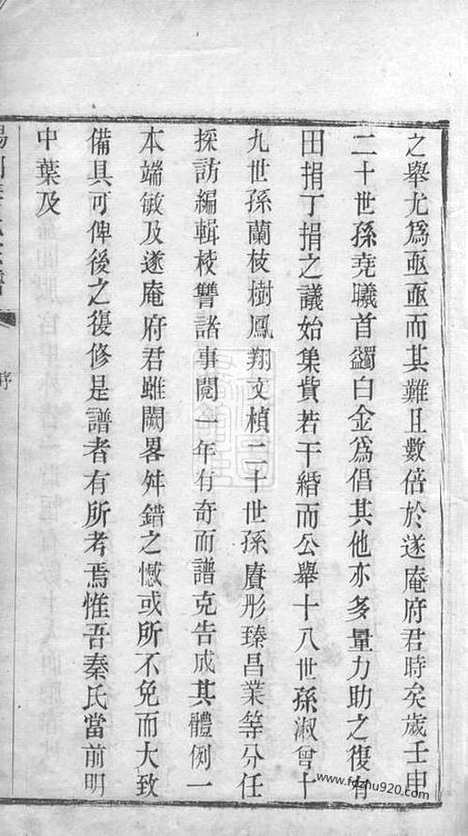 之舉尤爲亟亟而其難且數倍於遂庵府君時矣歲壬申
二十世孫堯曦首蠲白金爲倡其他亦多量力助之復有
田捐丁捐之議始集貲若干緡而公舉十八世孫淑曾十
九世孫蘭枝樹鳳翔文楨二十世孫賡彤臻昌業等分任
採訪編輯校讐諸事閱一年有奇而譜克告成其體例一
本端敏及遂庵府君雖闕畧舛錯之憾或所不免而大致
備具可俾後之復修是譜者有所考焉惟吾秦氏當前明
中葉及
序
www.fozhu920.com